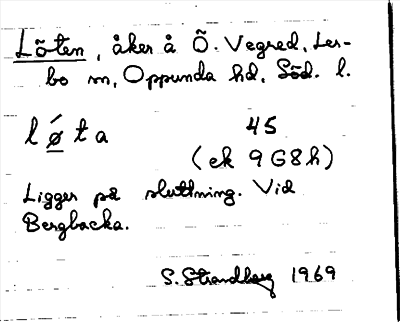 Löten, åker å Ö. Vegred, Ler-
bo sn, Oppunda hd, Söd. l.
lǿta 45
(ek 9G8h)
Ligger på sluttning. Vid
Bergbacka.
S. Strandberg 1969